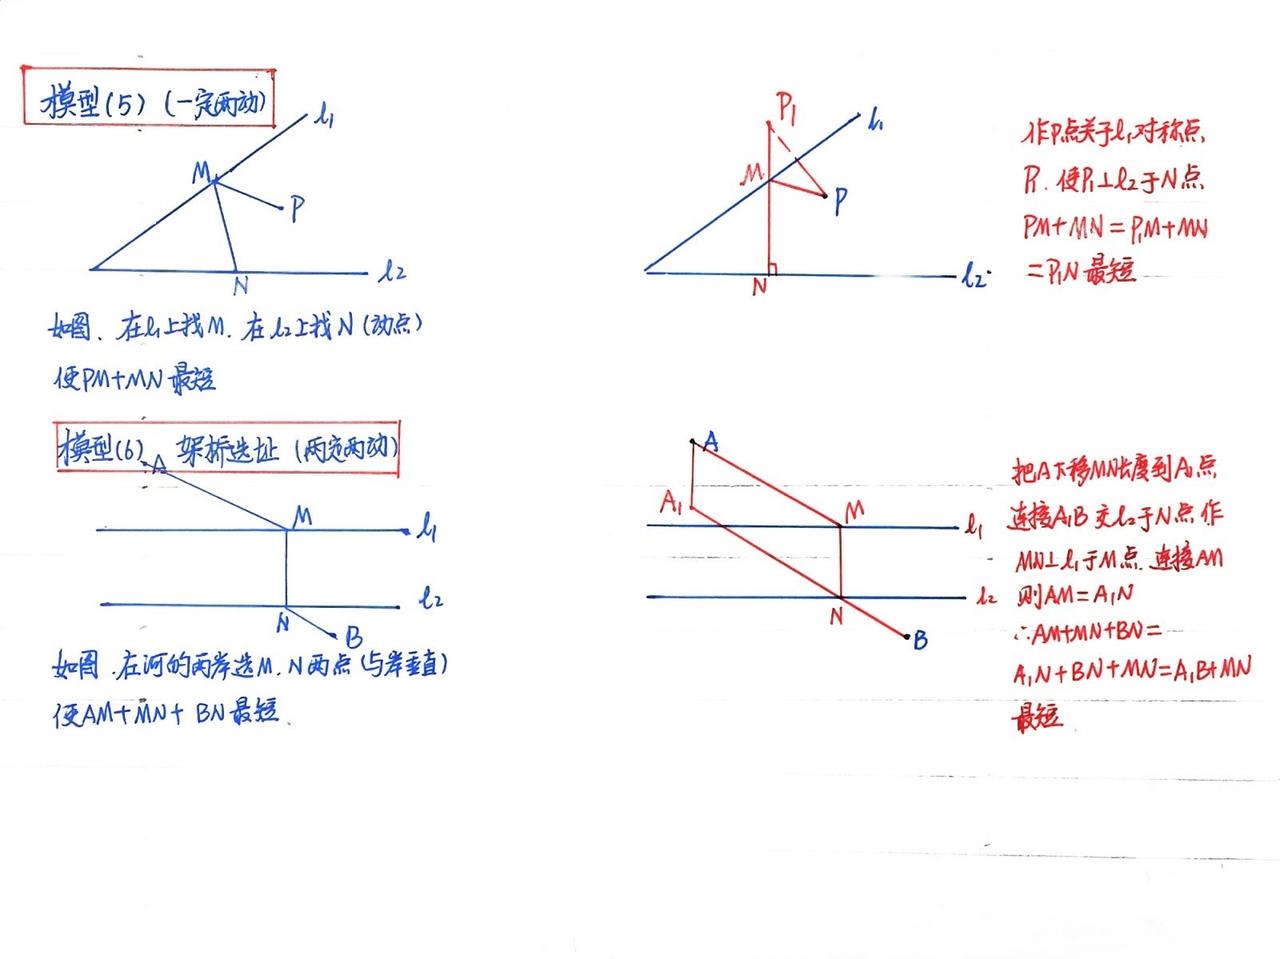 模型(5)(一定两动)
l₁
M
P
N
l₂
如图、在l₁上找M.在l₂上找N(动点)
使PM+MN最短
P₁
l₁
M
P
N
l₂.
作P点关于l₁对称点,
P₁.使P₁⊥l₂于N点
PM+MN=P₁M+MN
=P₁N最短
模型(6)、架桥选址(两定两动)
A
M
l₁
l₂
N
B
如图.在河的两岸选M.N两点(与岸垂直)
使AM+MN+BN最短、
A
A₁
M
l₁
l₂
N
B
把A下移MN长度到A₁点
连接A₁B交l₂于N点作
MN⊥l₁于M点.连接AM
则AM=A₁N
∴AM+MN+BN=
A₁N+BN+MN=A₁B+MN
最短